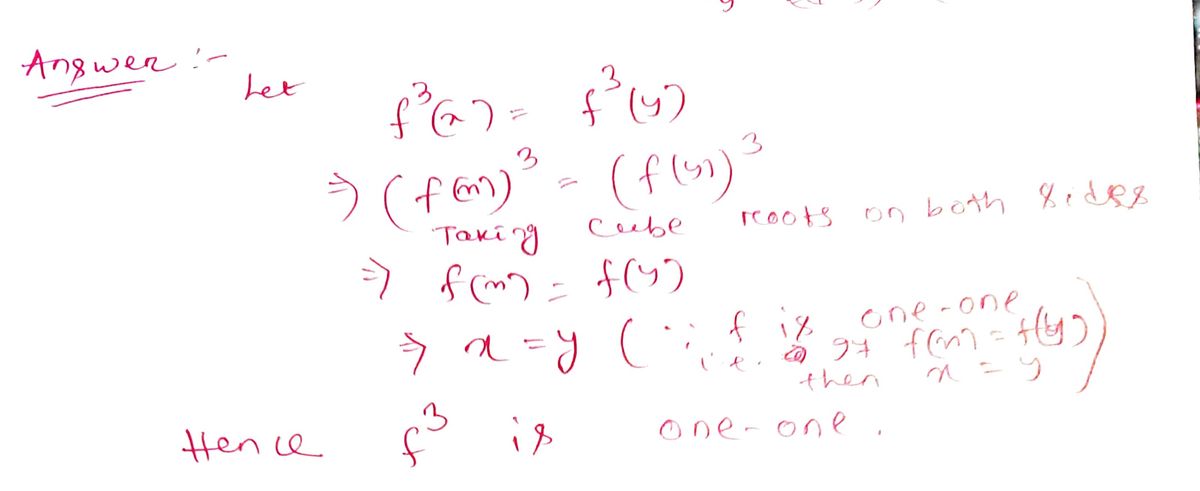 Answer :-
Let f³(x) = f³(y)
⇒ (f(x))³ = (f(y))³
Taking Cube roots on both sides
⇒ f(x) = f(y)
⇒ x = y (∵ f is one-one
i.e. if f(x) = f(y)
then x = y)
Hence f³ is one-one.